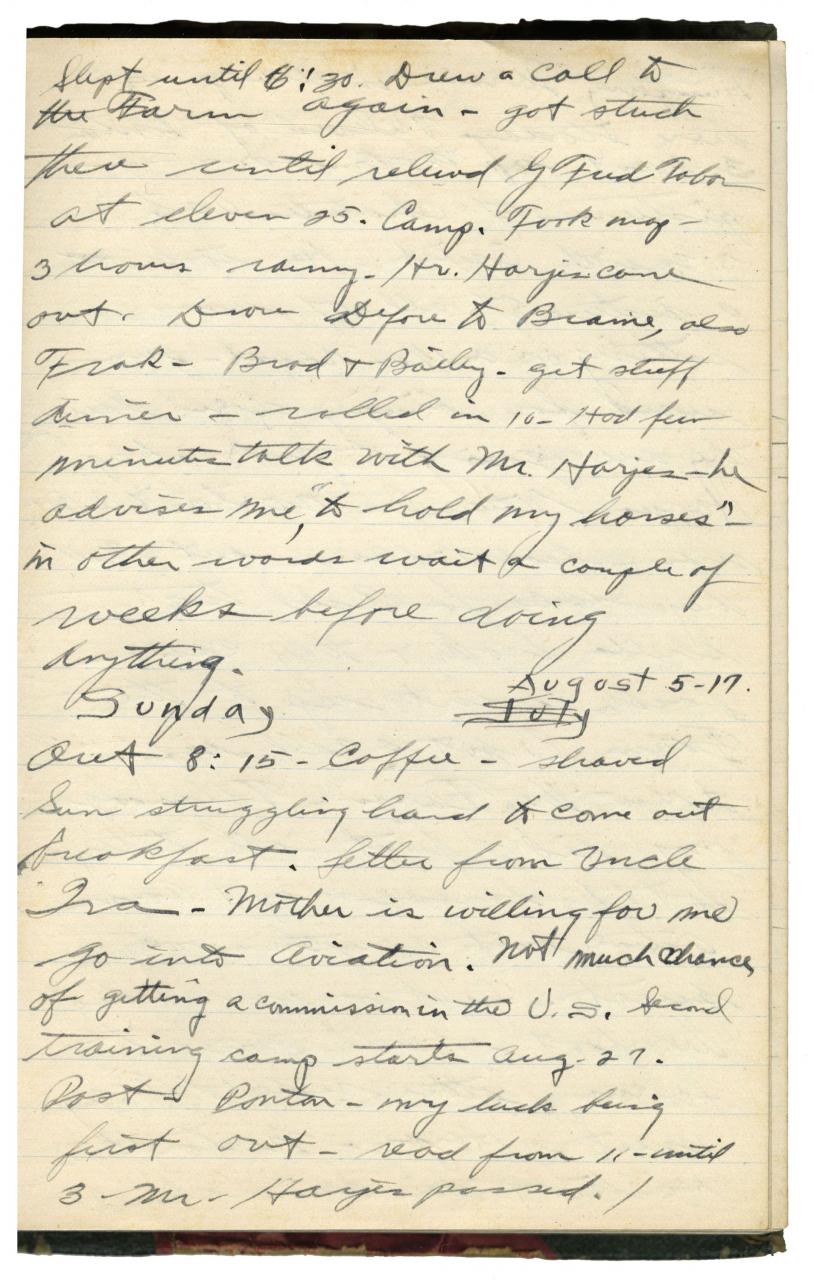 Slept until 6:30. Drew a call to
the Farm again - got stuck
there until relievd by Fred Tabor
at eleven 25. Camp. Took
3 hours rainy. Mr. Harjes came
out. Drove to Braine, also
- Brad + Bailey - get stuff
dinner - rolled in 10 - Had few
minutes talk with Mr. Harjes - he
advises me, "to hold my horses" -
in other words wait a couple of
weeks before doing
Anything.
August 5-17.
Sunday July
Out 8:15 - Coffee - shaved
Sun struggling hard to come out
Breakfast. Letter from Uncle
Ira - Mother is willing for me
go into Aviation. Not much chance
of getting a commission in the U.S. Second
training camp starts Aug. 27.
Post - - my luck being
first out - read from 11 - until
3 - Mr - Harjes passed.